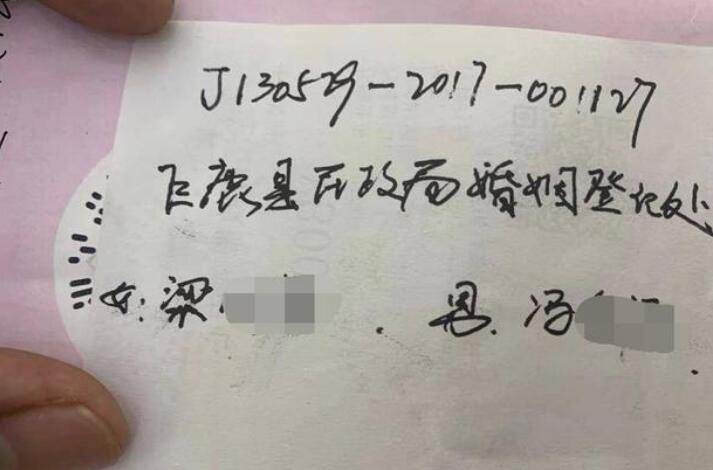 J130529-2017-001127
巨鹿县民政局婚姻登记处
女:梁 . 男. 冯 .